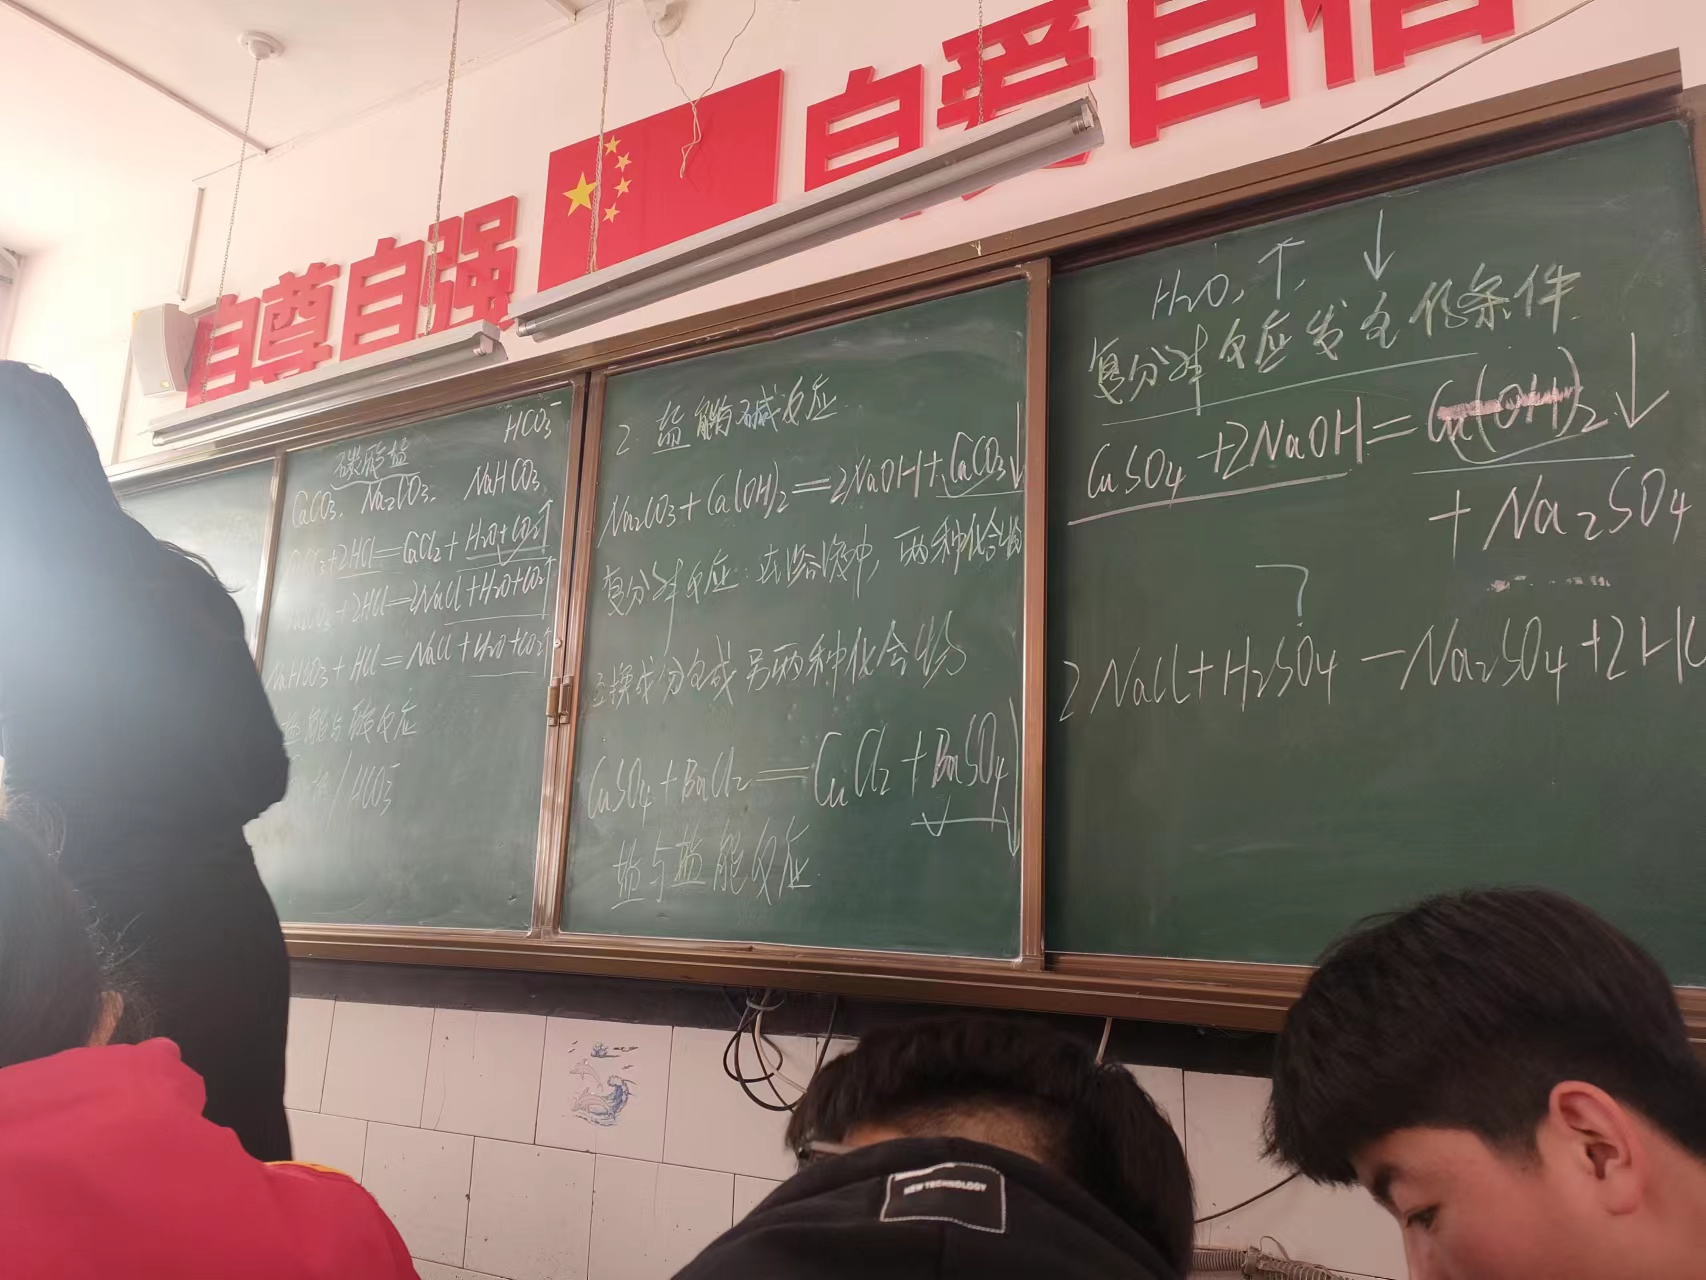 自尊自强
自爱自信
HCO₃⁻
碳酸盐
CaCO₃、Na₂CO₃、NaHCO₃
CaCO₃+2HCl=CaCl₂+H₂O+CO₂↑
Na₂CO₃+2HCl=2NaCl+H₂O+CO₂↑
NaHCO₃+HCl=NaCl+H₂O+CO₂↑
盐能与酸反应
/HCO₃⁻
2. 盐能与碱反应
Na₂CO₃+Ca(OH)₂=2NaOH+CaCO₃↓
复分解反应:在溶液中,两种化合物
互换成分生成另两种化合物
CuSO₄+BaCl₂=CuCl₂+BaSO₄↓
盐与盐能反应
H₂O、↑、↓
复分解反应发生的条件
CuSO₄+2NaOH=Cu(OH)₂↓
+Na₂SO₄
?
2NaCl+H₂SO₄—Na₂SO₄+2HC
NEW TECHNOLOGY